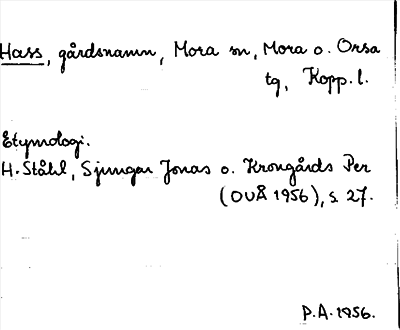 Hass, gårdsnamn, Mora sn, Mora o. Orsa
tg, Kopp. l.
Etymologi.
H. Ståhl, Sjungar Jonas o. Krongårds Per
(OUÅ 1956), s. 27.
P.A. 1956.